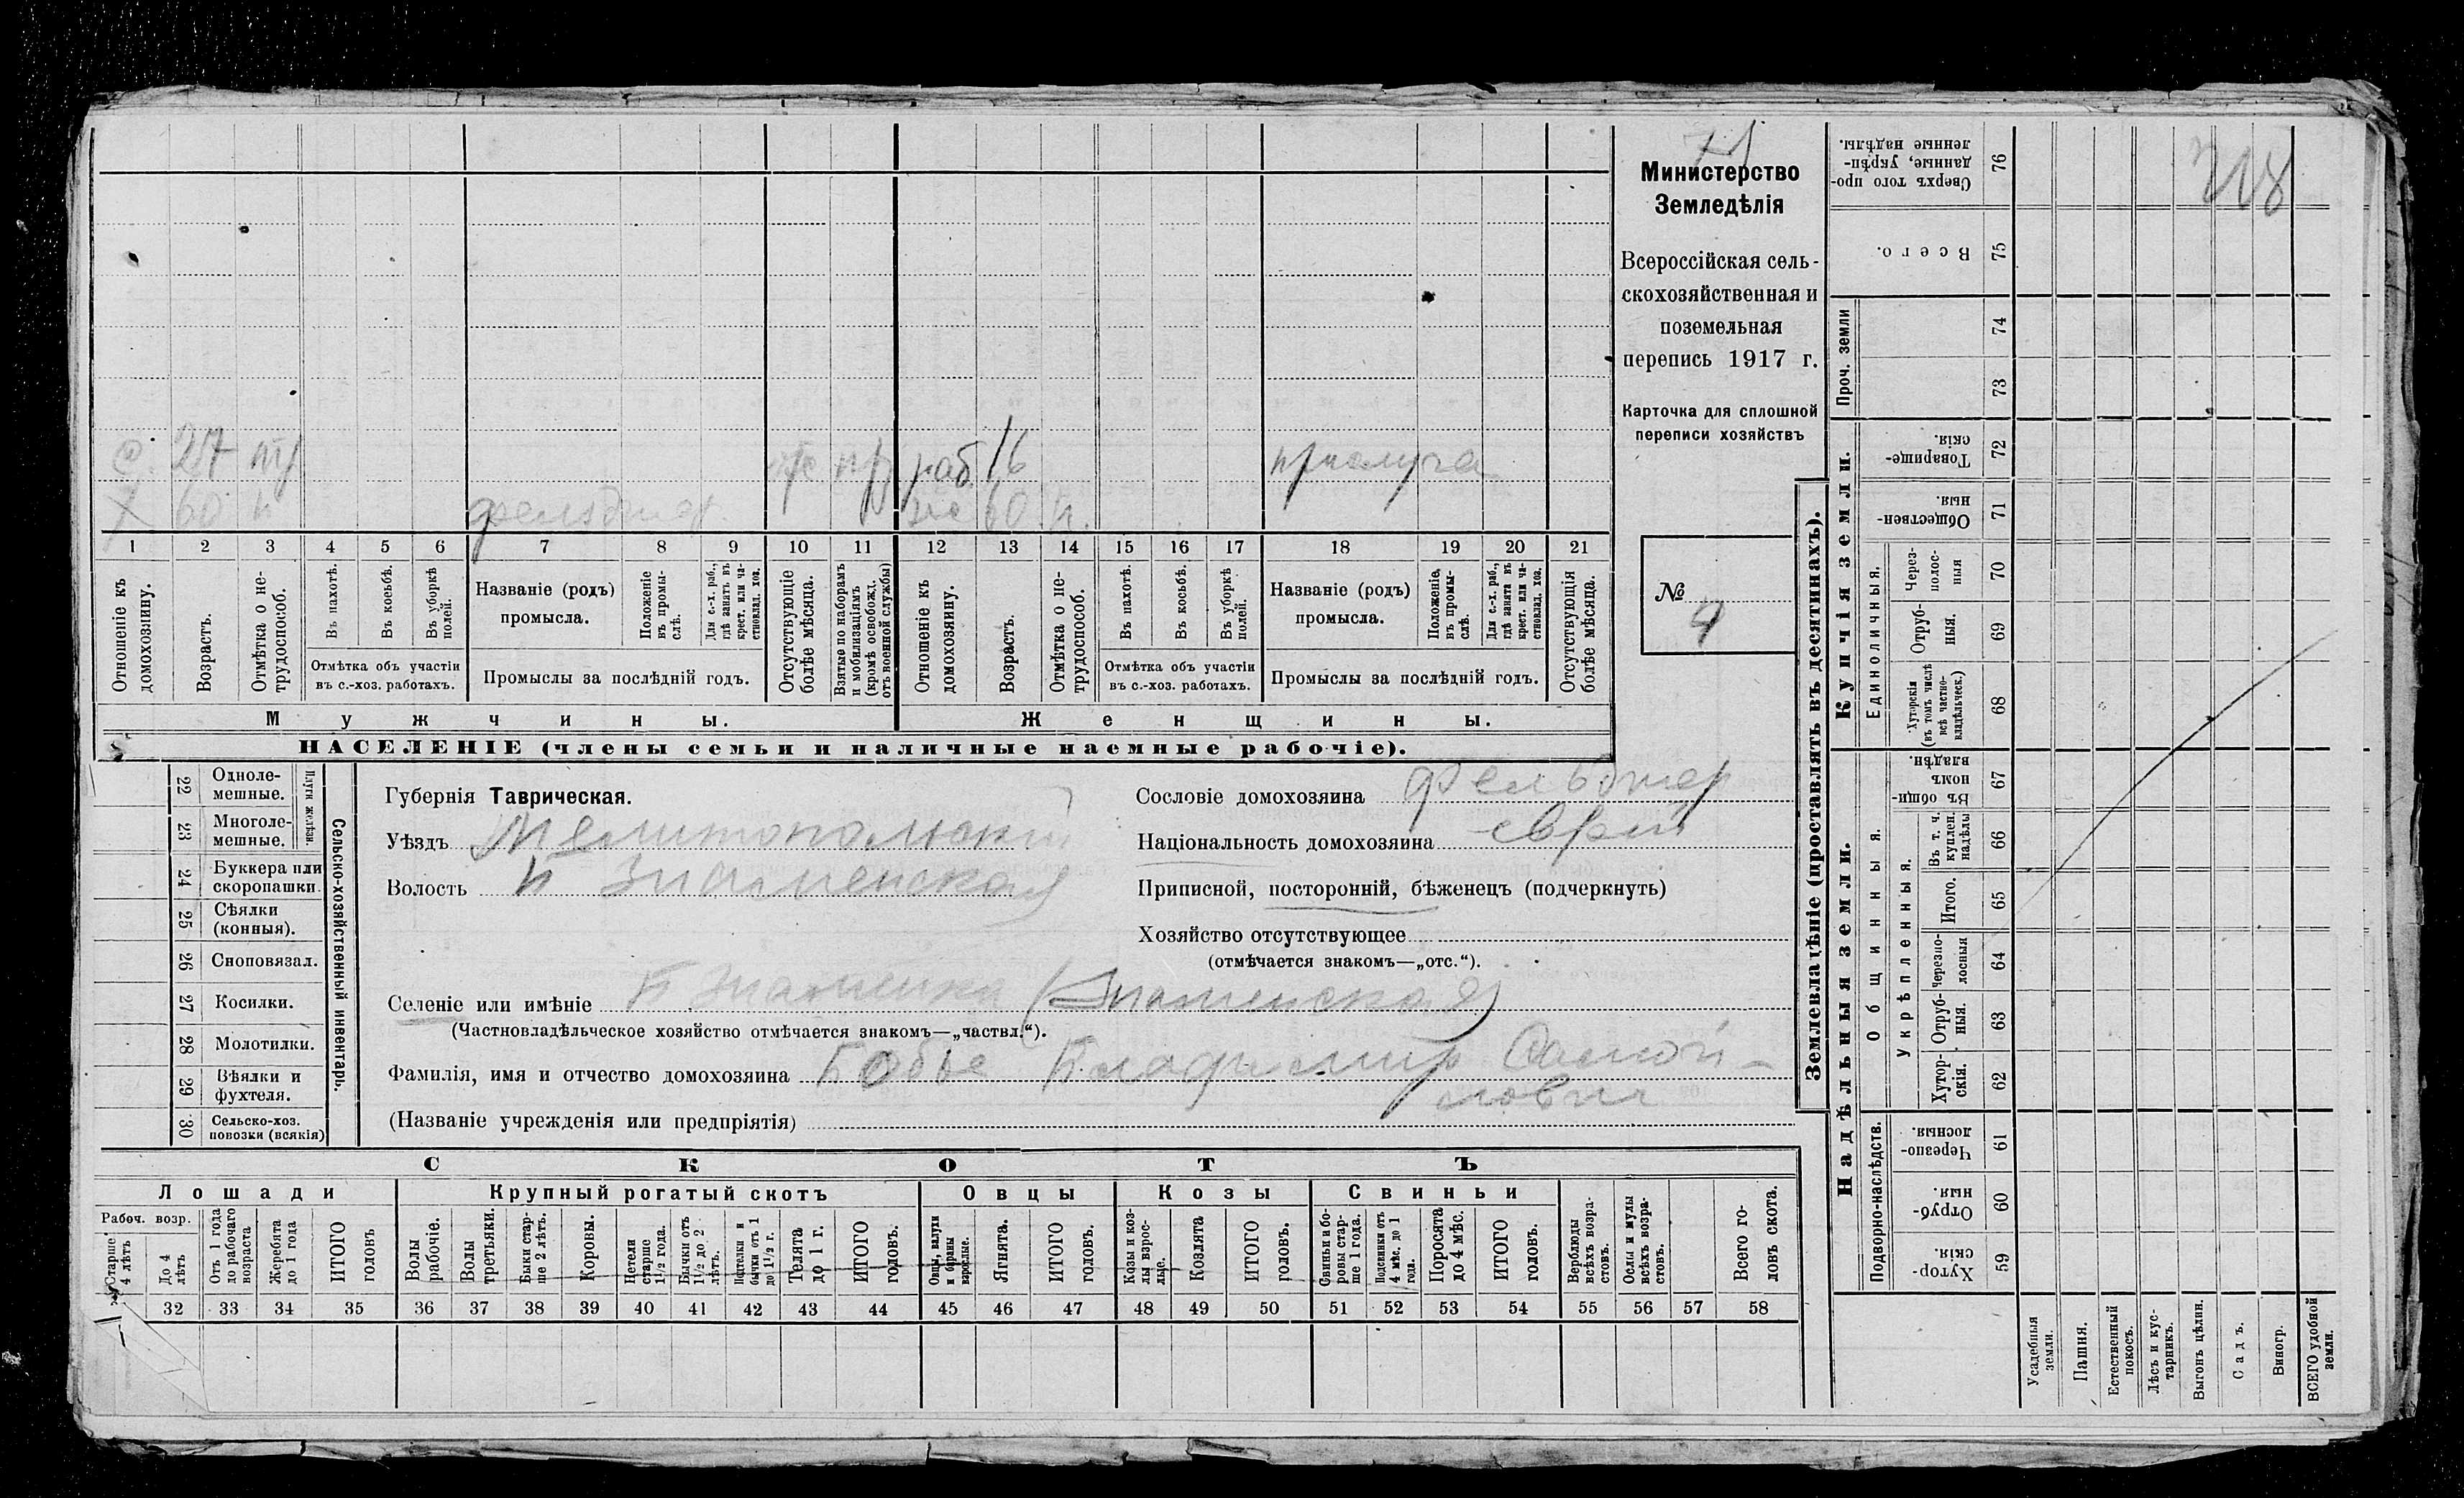 71
218
Министерство
Земледѣлія
Всероссійская сель-
скохозяйственная и
поземельная
перепись 1917 г.
Карточка для сплошной
переписи хозяйствъ
№
4
с. 27 тр пр раб. 16 прислуга
х 60 н фельдшер. же 60 н.
1 2 3 4 5 6 7 8 9 10 11 12 13 14 15 16 17 18 19 20 21
Отношеніе къ домохозяину.
Возрастъ.
Отмѣтка о не-трудоспособ.
Въ пахотѣ.
Въ косьбѣ.
Въ уборкѣ полей.
Отмѣтка объ участіи
въ с.-хоз. работахъ.
Названіе (родъ)
промысла.
Положеніе въ промы-слѣ.
Для с.-х. раб., гдѣ занятъ въ крест. или ча-стновлад. хоз.
Промыслы за послѣдній годъ.
Отсутствующіе болѣе мѣсяца.
Взятые по наборамъ и мобилизаціямъ (кромѣ освобожд. отъ военной службы)
Отношеніе къ домохозяину.
Возрастъ.
Отмѣтка о не-трудоспособ.
Въ пахотѣ.
Въ косьбѣ.
Въ уборкѣ полей.
Отмѣтка объ участіи
въ с.-хоз. работахъ.
Названіе (родъ)
промысла.
Положеніе въ промы-слѣ.
Для с.-х. раб., гдѣ занята въ крест. или ча-стновлад. хоз.
Промыслы за послѣдній годъ.
Отсутствующія болѣе мѣсяца.
Мужчины.
Женщины.
НАСЕЛЕНІЕ (члены семьи и наличные наемные рабочіе).
22 Одноле-мешные.
23 Многоле-мешные.
Плуги желѣзн.
24 Буккера или скоропашки.
25 Сѣялки (конныя).
26 Сноповязал.
27 Косилки.
28 Молотилки.
29 Вѣялки и фухтеля.
30 Сельско-хоз. повозки (всякія)
Сельско-хозяйственный инвентарь.
Губернія Таврическая.
Уѣздъ Мелитопольскій
Волость Б Знаменская
Селеніе или имѣніе Б Знаменка (Знаменская)
(Частновладѣльческое хозяйство отмѣчается знакомъ—„частвл.“).
Фамилія, имя и отчество домохозяина Владимир Самой-
лович
(Названіе учрежденія или предпріятія)
Сословіе домохозяина фельдшер
Національность домохозяина еврей
Приписной, посторонній, бѣженецъ (подчеркнуть)
Хозяйство отсутствующее
(отмѣчается знакомъ—„отс.“).
СКОТЪ
Лошади
Крупный рогатый скотъ
Овцы
Козы
Свиньи
Рабоч. возр.
Старше 4 лѣтъ
До 4 лѣтъ
Отъ 1 года до рабочаго возраста
Жеребята до 1 года
ИТОГО головъ
Волы рабочіе.
Волы третьяки.
Быки стар-ше 2 лѣтъ.
Коровы.
Нетели старше 1½ года.
Бычки отъ 1½ до 2 лѣтъ.
Подтелки и бычки отъ 1 до 1½ г.
Телята до 1 г.
ИТОГО головъ.
Овцы, валухи и бараны взрослые.
Ягнята.
ИТОГО головъ.
Козы и коз-лы взрос-лые.
Козлята
ИТОГО головъ.
Свиньи и бо-ровы стар-ше 1 года.
Подсвинки отъ 4 мѣс. до 1 года.
Поросята до 4 мѣс.
ИТОГО головъ.
Верблюды всѣхъ возра-стовъ.
Ослы и мулы всѣхъ возра-стовъ.
Всего го-ловъ скота.
32 33 34 35 36 37 38 39 40 41 42 43 44 45 46 47 48 49 50 51 52 53 54 55 56 57 58
Землевладѣніе (проставлять въ десятинахъ).
Купчія земли.
Надѣльныя земли.
Сверхъ того про-данные, укрѣп-ленные надѣлы. 76
Всего. 75
Проч. земли
74
73
Товарище-скія. 72
Обществен-ныя. 71
Единоличныя.
Через-полос-ныя 70
Отруб-ныя. 69
Хуторскія (въ томъ числѣ всѣ частно-владѣльческ.) 68
Въ общин-номъ владѣн. 67
Общинныя.
Укрѣпленныя.
Въ т. ч. куплен. надѣлы 66
Итого. 65
Черезпо-лосныя 64
Отруб-ныя. 63
Хутор-скія. 62
Подворно-наслѣдств.
Черезпо-лосныя. 61
Отруб-ныя. 60
Хутор-скія. 59
Усадебныя земли.
Пашня.
Естественный покосъ.
Лѣсъ и кус-тарникъ.
Выгонъ цѣлин.
Садъ.
Виногр.
ВСЕГО удобной земли.